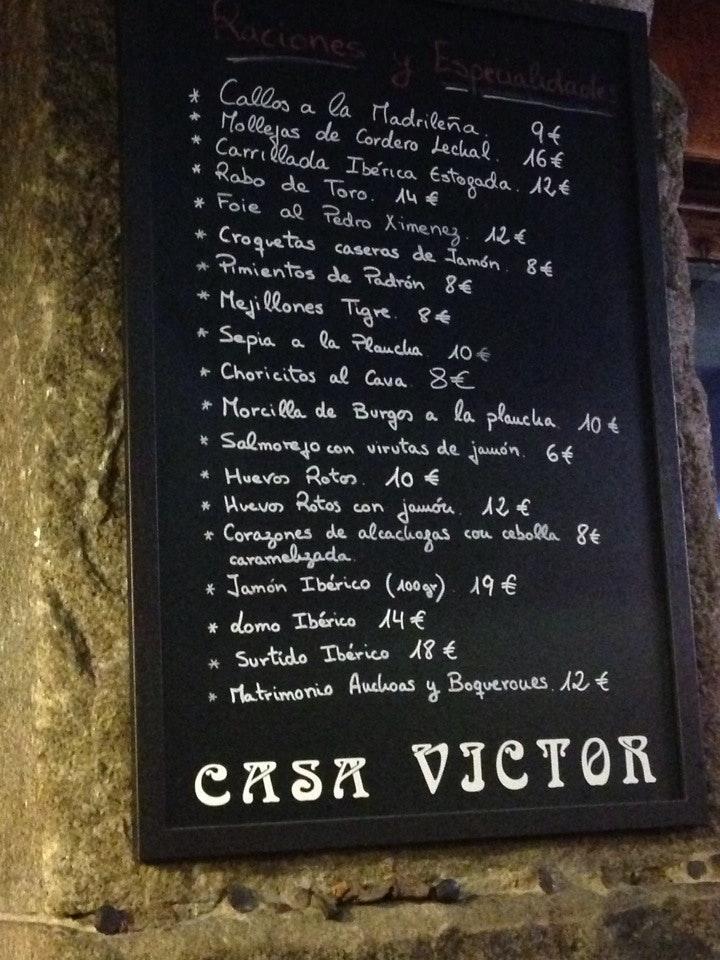 Raciones y Especialidades
* Callos a la Madrileña. 9€
* Mollejas de Cordero Lechal. 16€
* Carrillada Ibérica Estogada. 12€
* Rabo de Toro. 14€
* Foie al Pedro Ximenez. 12€
* Croquetas caseras de Jamón. 8€
* Pimientos de Padrón 8€
* Mejillones Tigre. 8€
* Sepia a la Plancha 10€
* Choricitos al Cava. 8€
* Morcilla de Burgos a la plancha 10€
* Salmorejo con virutas de jamón. 6€
* Huevos Rotos. 10€
* Huevos Rotos con jamón. 12€
* Corazones de alcachogas con cebolla 8€
caramelizada.
* Jamón Ibérico (100gr). 19€
* Lomo Ibérico 14€
* Surtido Ibérico 18€
* Matrimonio Anchoas y Boquerones. 12€
CASA VICTOR